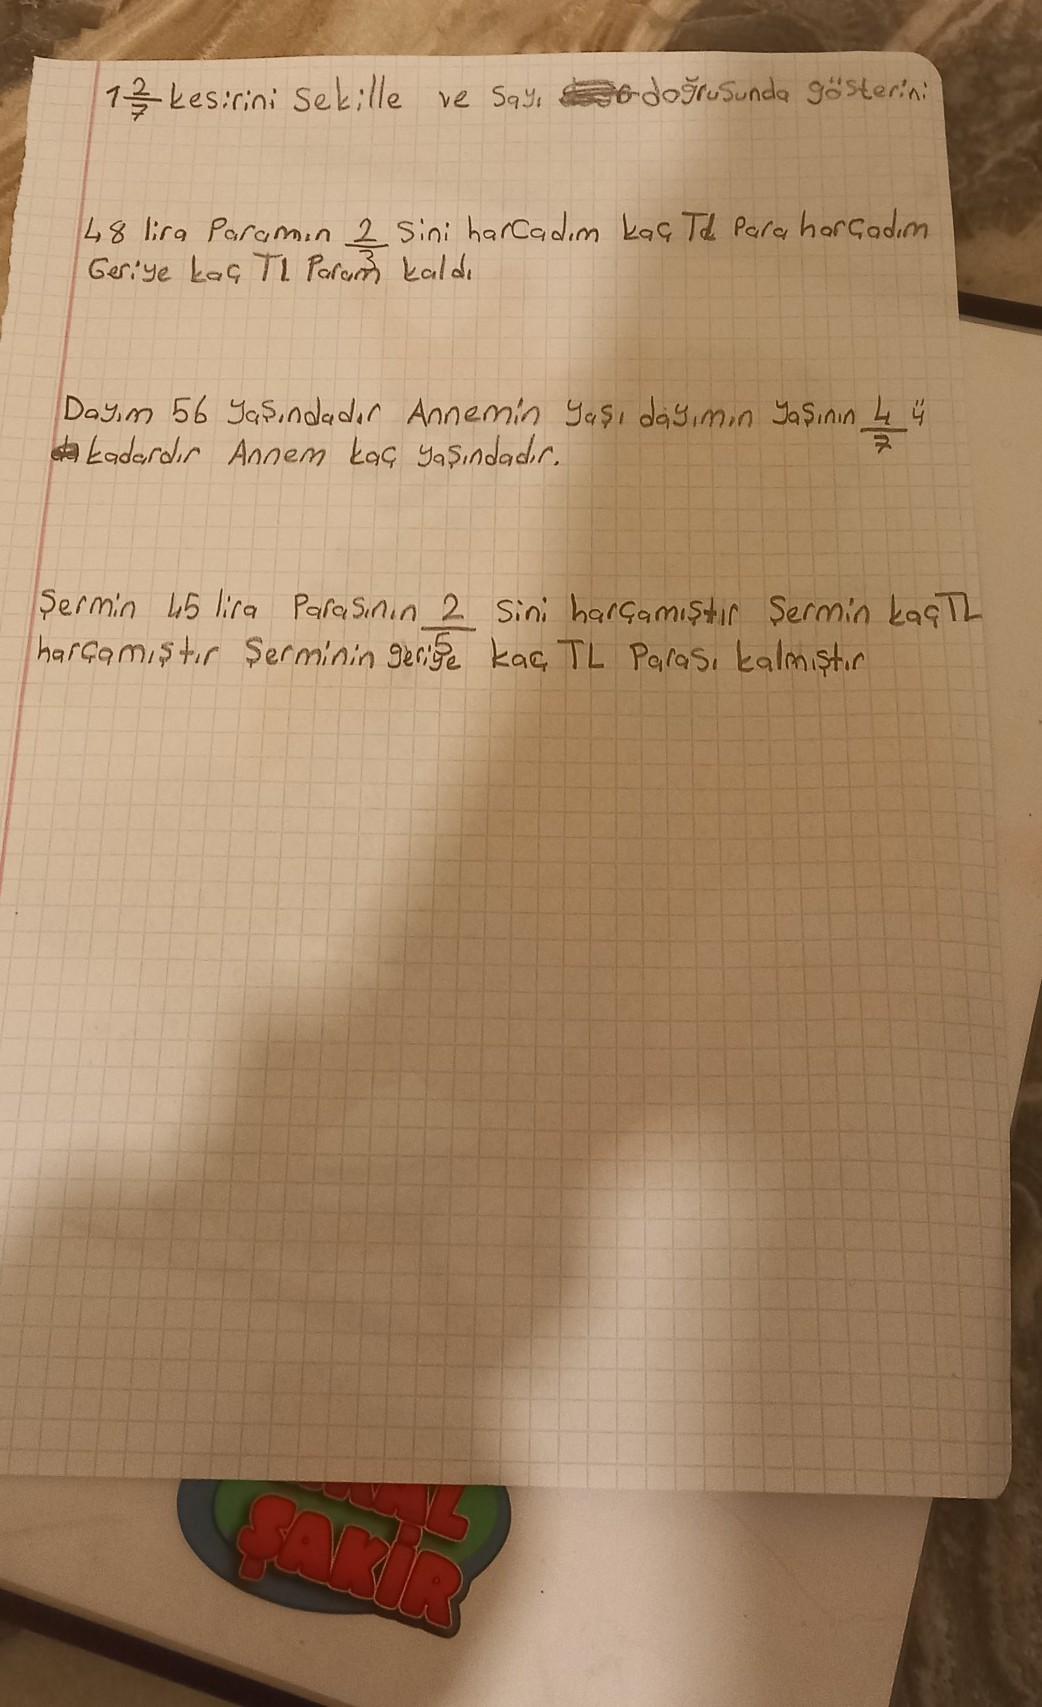 1 2/7 kesirini Sekille ve Sayı doğrusunda gösterini
48 lira Paramın 2/3 Sini harCadım kaç TL Para harçadım
Geriye kaç TL Param kaldı
Dayım 56 yaşındadır Annemin yaşı dayımın yaşının 4/7 ü
kadardır Annem kaç yaşındadır.
Şermin 45 lira Parasının 2/5 Sini harçamıştır Şermin kaç TL
harçamıştır Şerminin geriye kaç TL Parası kalmıştır
KRAL
ŞAKİR